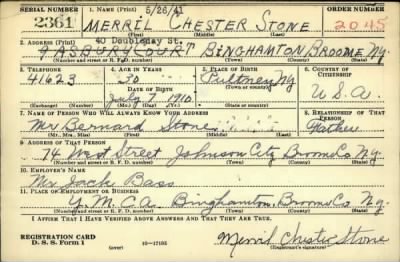 SERIAL NUMBER 1. NAME (Print) 5/26/41 ORDER NUMBER
2361 MERRIL CHESTER STONE 2045
(First) (Middle) (Last)
2. ADDRESS (Print) 40 Doubleday St.
9 ASBURY COURT BINGHAMTON, BROOME NY
(Number and street or R. F. D. number) (Town) (County) (State)
3. TELEPHONE 4. AGE IN YEARS 5. PLACE OF BIRTH 6. COUNTRY OF CITIZENSHIP
41623 30 Pultney
DATE OF BIRTH (Town or county)
July 1910 NY U.S.A.
(Exchange) (Number) (Mo.) (Day) (Yr.) (State or country)
7. NAME OF PERSON WHO WILL ALWAYS KNOW YOUR ADDRESS 8. RELATIONSHIP OF THAT PERSON
Mr Bernard Stone Father
(Mr., Mrs., Miss) (First) (Middle) (Last)
9. ADDRESS OF THAT PERSON
74 West Street Johnson City Broome Co Ny
(Number and street or R. F. D. number) (Town) (County) (State)
10. EMPLOYER'S NAME
Mr. Jack Bass
11. PLACE OF EMPLOYMENT OR BUSINESS
Y.M.C.A. Binghamton, Broome Co Ny.
(Number and street or R. F. D. number) (Town) (County) (State)
I AFFIRM THAT I HAVE VERIFIED ABOVE ANSWERS AND THAT THEY ARE TRUE.
REGISTRATION CARD
D. S. S. Form 1 (over) 16—17105 Merril Chester Stone
(Registrant's signature)